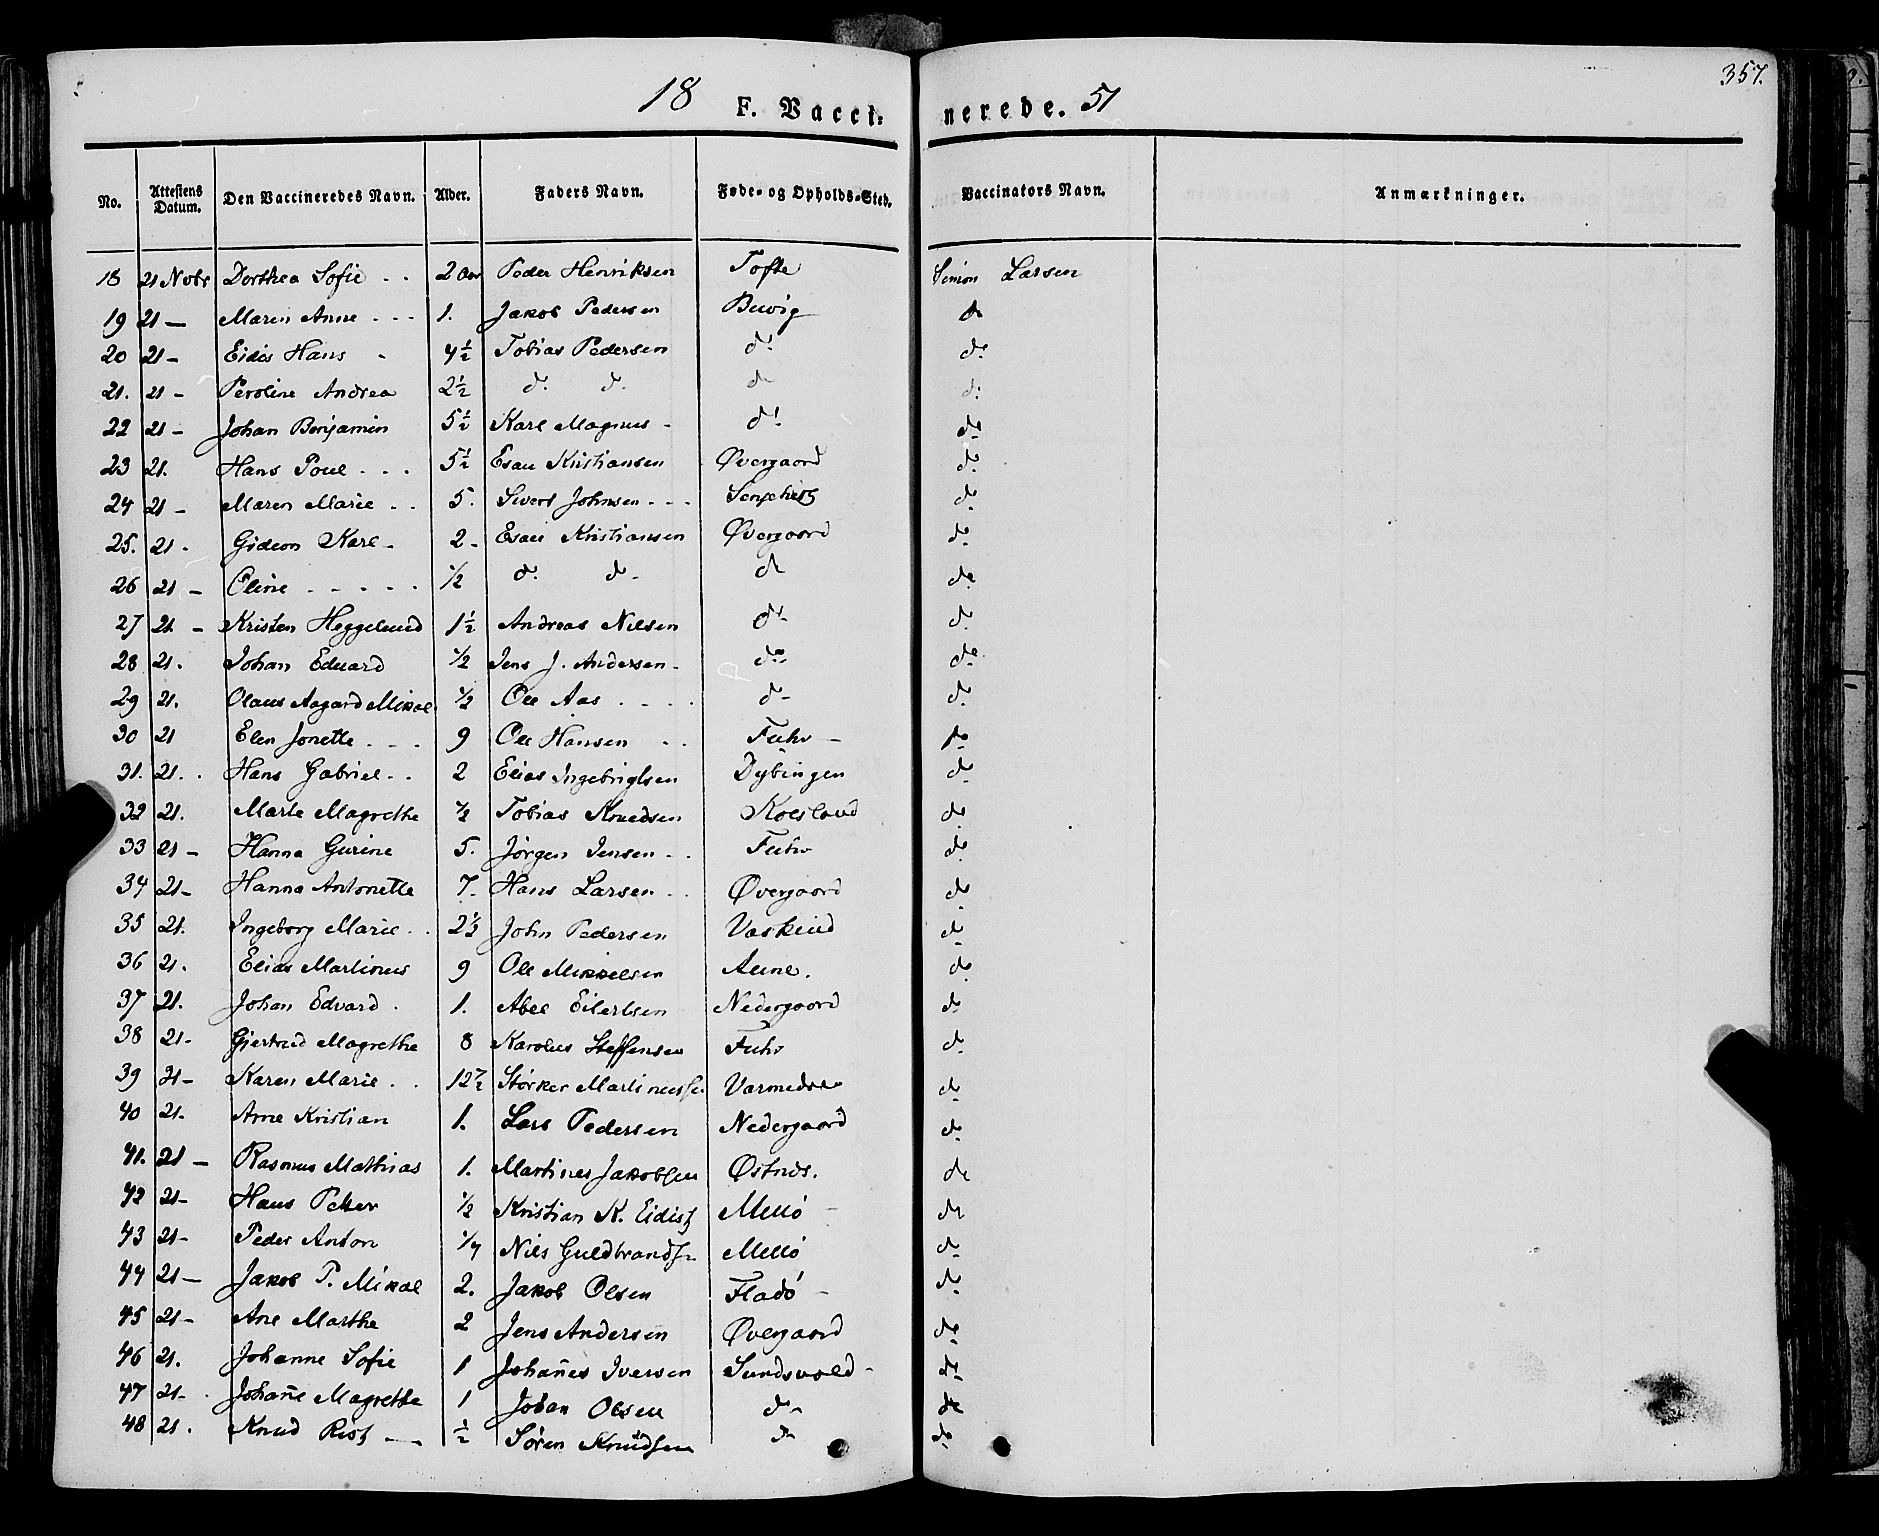 357.
18 F. Vacci- nerede. 51
No. Attestens Datum. Den Vaccineredes Navn. Alder. Faders Navn. Føde- og Opholds-Sted. Vaccinators Navn. Anmærkninger.
18 21 Nobr Dorthea Sofie - - 2 Aar Peder Henriksen Tofte Simon Larsen
19 21 — Maren Anne - - - 1. Jakob Pedersen Buvig do
20 21 - Eidis Hans - 4½ Tobias Pedersen do do
21. 21 - Peroline Andrea 2½ do do do do
22 21 - Johan Benjamin 5½ Karl Magnus - do do
23 21. Hans Poul - - - 5½ Esau Kristiansen Øvergaard do
24 21 - Maren Marie - - 5. Sivert Johnsen - - - do
25. 21. Gideon Karl - 2 - Esau Kristiansen Øvergaard do
26 21 - Oline - - - - - ½ do do do do
27 21 - Kristen Heggelund 1½ Andreas Nilsen do do
28 21. Johan Eduard ½ Jens J. Andersen - do do
29 21. Olaus Aagard Mikal ½ Ole Aas - - - - do do
30 21 Elen Jonette - - - 9 Ole Hansen - - Fuhr - do
31. 21. Hans Gabriel - - 2 Elias Ingebrigtsen Dybingen do
32 21. Marte Magrethe ½ Tobias Knudsen do
33 21 - Hanna Gurine 5. Jørgen Jensen - - Fuhr do
34 21 - Hanna Antonette 7. Hans Larsen - - Øvergaard do
35 21. Ingeborg Marie - - 2½ John Pedersen do
36 21. Elias Martinus 9 Ole Mikkelsen Aune. do
37 21. Johan Edvard - 1. Abel Eilertsen Nedergaard do
38 21 - Gjertrud Magrethe 8 Karolus Steffensen Fuhr do
39 21 - Karen Marie - - Størker Martinussen do
40 21. Arne Kristian 1. Lars Pedersen Nedergaard do
41. 21 — Rasmus Mathias 1. Martines Jakobsen Østnes. do
42 21 - Hans Peter ½ Kristian K. Eidis Melló - do
43 21 - Peder Anton ¼ Nils Guldbrands. Melló do
44 21 — Jakob P. Mikal 2. Jakob Olsen Fladó - do
45 21 - Ane Marthe 2 Jens Andersen Øvergaard do
46 21. Johanne Sofie 1 Johañes Iversen Sundsvold - do
47 21 - Johañe Magrethe 1 Johan Olsen do do
48 21. Knud Rist — ½ Søren Knudsen do do